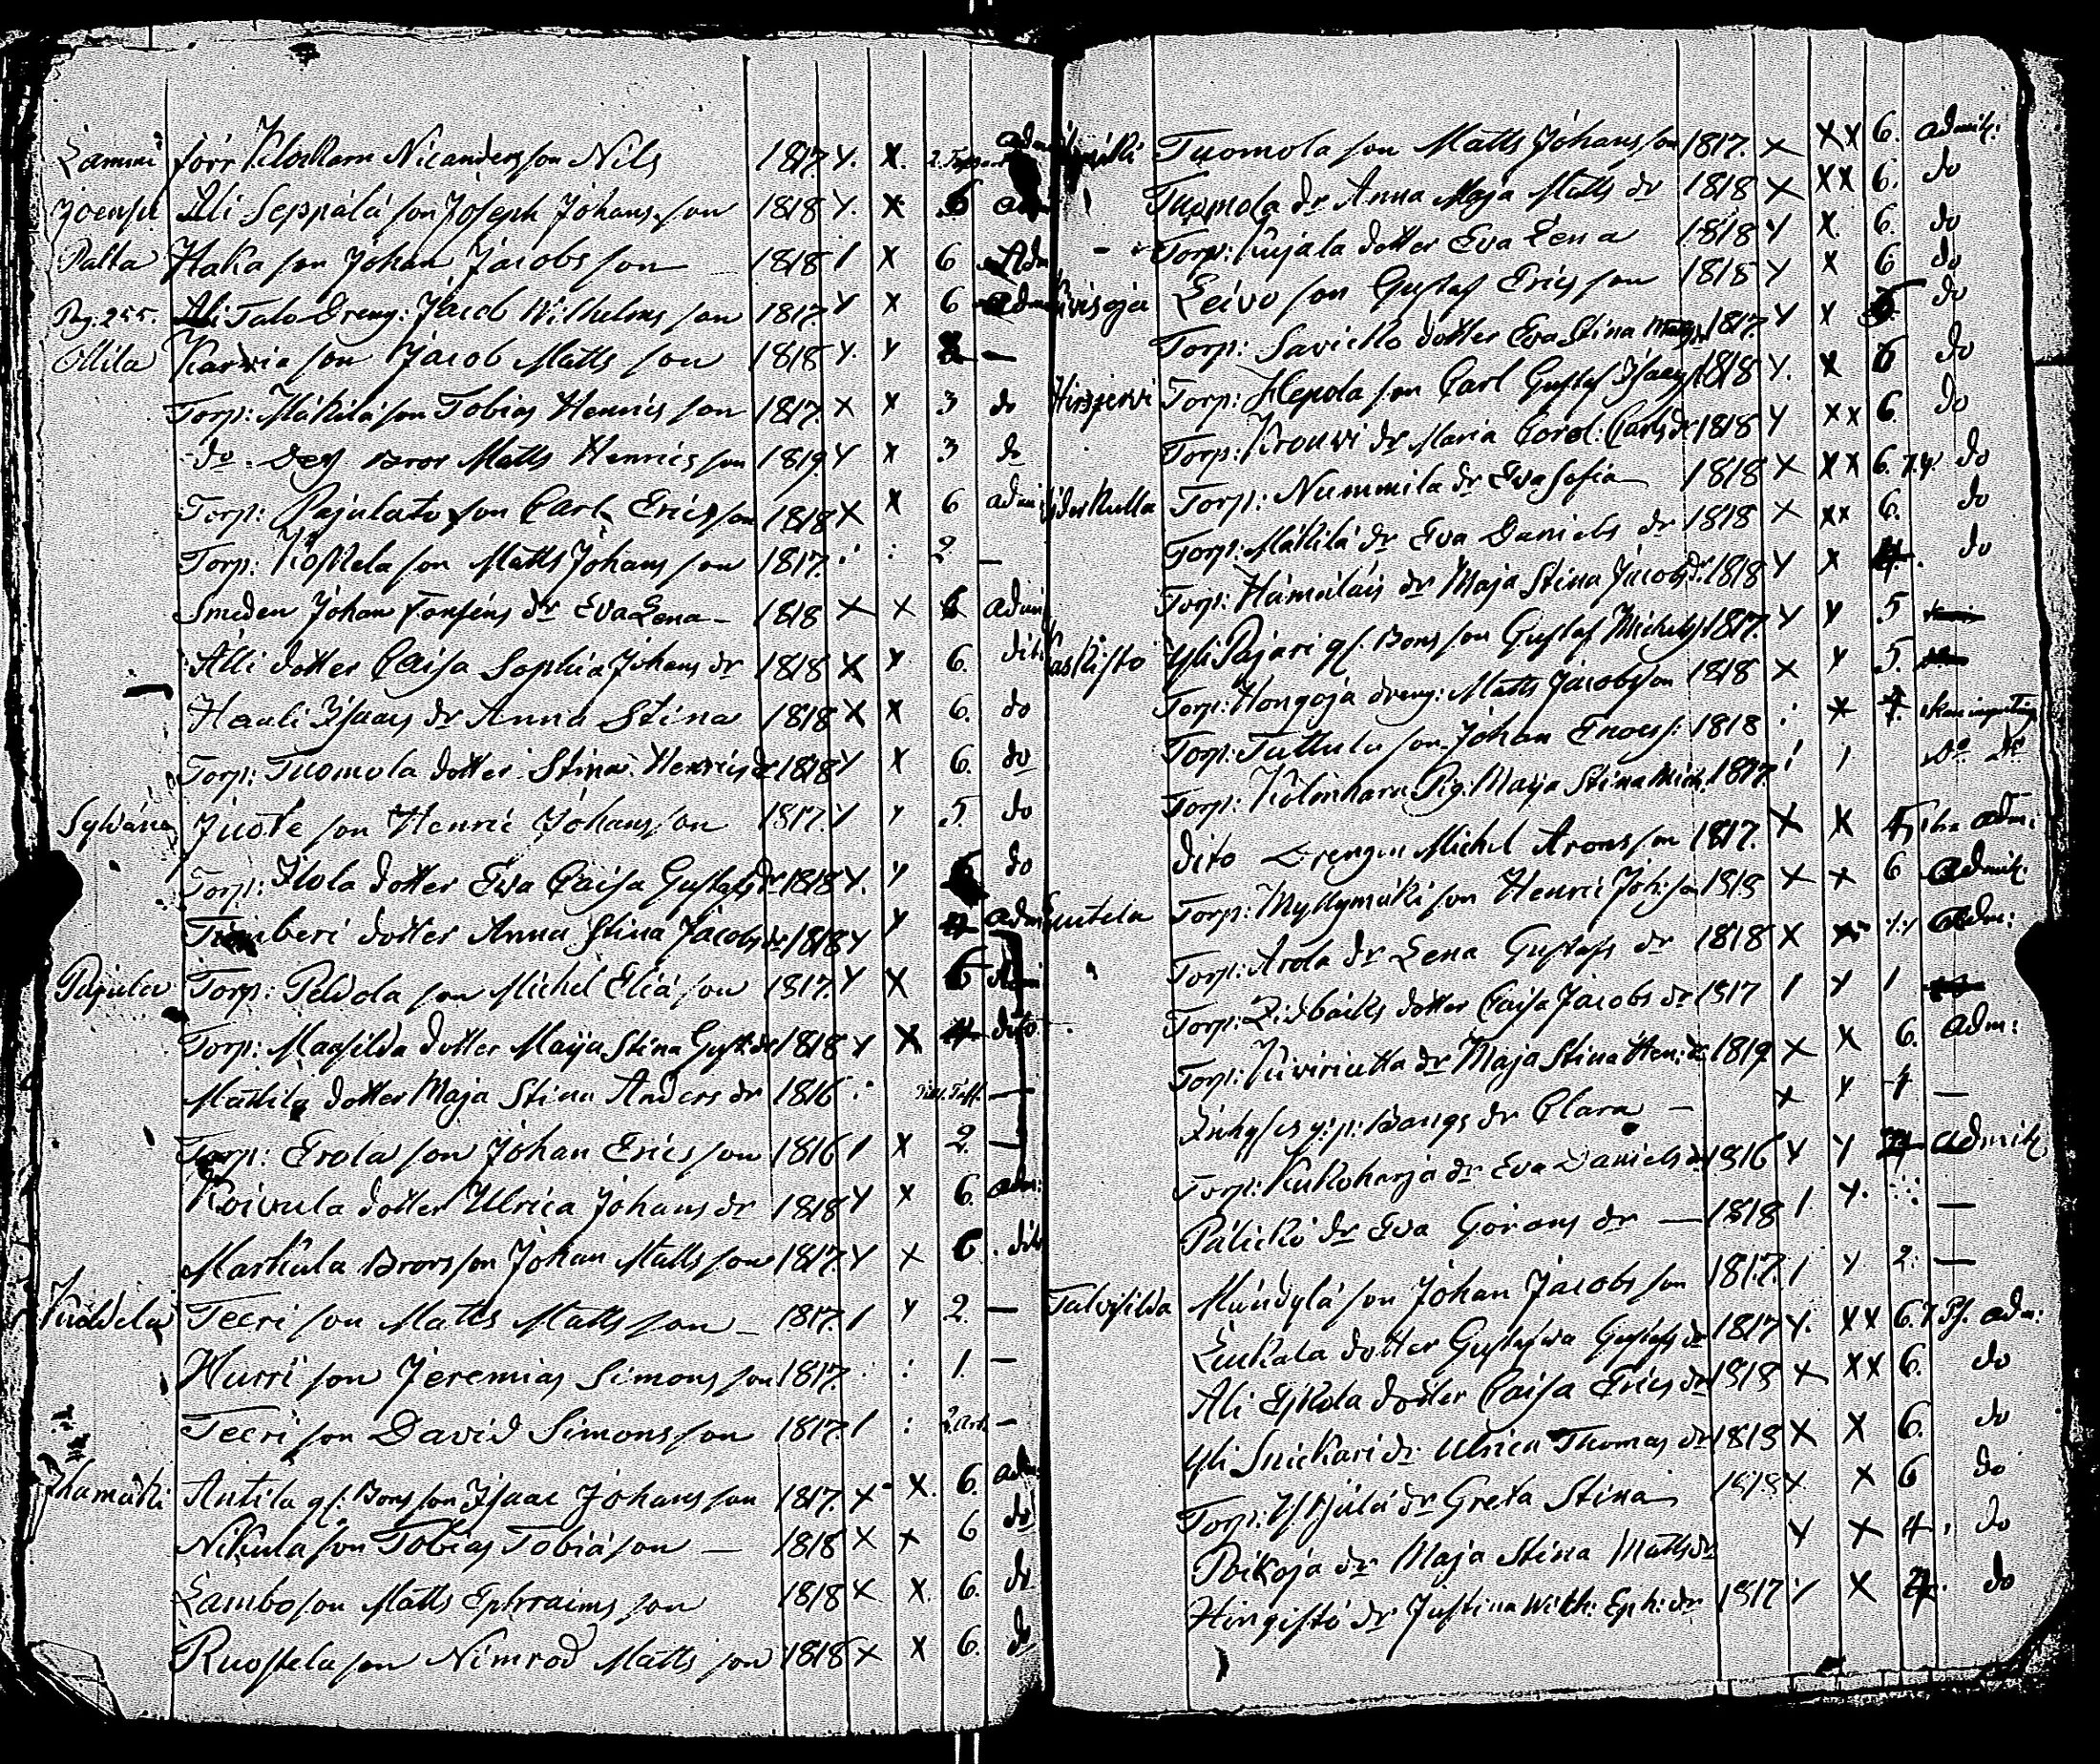 Lammi förr Klockarn Nicanders son Nils 1817. x. x. adm
Joensu Ali Seppälä son Joseph Johans son 1818 x. x 6 adm
Palta Haka son Johan Jacobs son 1818 1 x 6 Adm
Pag. 255. Ali Talo Dreng: Jacob Wilhelms son 1817. x x 6 adm
Ollila Karvia son Jacob Matts son 1818 x. x —
Torp: Mäkilä son Tobias Henrics son 1817. x x 3 do
do. Des Bror Matts Henrics son 1819 x x 3 do
Torp: Pajulato son Carl Erics son 1818 x x 6 adm
Torp: Koskela son Matts Johans son 1817. : : 2 —
Smeden Johan Forsens dr Eva Lena — 1818 x x 6 adm
Alli dotter Caisa Sophia Johans dr 1818 x x 6. dit
Hauli Isaacs dr Anna Stina 1818 x x 6. do
Torp: Tuomola dotter Stina Henrics dr 1818 x x 6. do
Sylvänä Juote son Henric Johans son 1817. x x 5 do
Torp: Ilola dotter Eva Caisa Gustafs dr 1818 x. x 6 do
dotter Anna Stina Jacobs dr 1818 x x 4 adm
Pajula Torp: Peldola son Michel Elia son 1817. x x 6 Adm
Torp: Mansilda dotter Maija Stina Gust: dr 1818 x x 4 dito
Mattila dotter Maja Stina Anders dr 1816 : —
Torp: Erola son Johan Erics son 1816 1 x 2. —
Koivula dotter Ulrica Johans dr 1818 x x 6. adm:
Markula Brors son Johan Matts son 1817. x x 6. dito
Teeri son Matts Matts son — 1817. 1 x 2. —
Hurri son Jeremias Simons son 1817. : : 1. —
Teeri son David Simons son 1817. 1 : —
Antila gl. Bons son Isaac Johans son 1817. x x. 6. adm
Nikula son Tobias Tobia son — 1818 x x 6 do
Lambo son Matts Ephraims son 1818 x x. 6. do
Ruostela son Nimrod Matts son 1818 x x 6. do
Tuomola son Matts Johans son 1817. x xx 6. admit:
Tuomola dr Anna Maja Matts dr 1818 x xx 6. do
Torp: Kujala dotter Eva Lena 1818 x x. 6. do
Leivo son Gustaf Erics son 1818 x x 6 do
Torp: Savikko dotter Eva Stina 1817. x x 5 do
Hirsjervi Torp: Hepola son Carl Gustaf Isacs s 1818 x. x 6 do
Torp: Krouvi dr Maria Carol: Carls dr 1818 x xx 6 do
Torp: Nummila dr Eva Sofia 1818 x xx 6. do
Torp: Mäkilä dr Eva Daniels dr 1818 x xx 6. do
Torp: dr Maja Stina Jacobs dr 1818 x x 4. do
Yli Pajari gl. Bons son Gustaf Michels s 1817. x x 5
Torp: Hongoja dreng: Matts Jacobsson 1818 x x 5.
Torp: Tuttula son Johan Enocss: 1818 : x
Torp: Pig: Maija Stina Mich. 1817. ! 1 do do
dito Drengen Michel Arons son 1817. x x adm:
Torp: Myllymäki son Henric Joh: son 1818 x x 6 admit.
Torp: Arola dr Lena Gustafs dr 1818 x x adm:
Torp: Lidbäcks dotter Caisa Jacobs dr 1817 1 x 1
Torp: dr Maja Stina Hen: dr 1819 x x 6. adm:
Bangs dr Clara — x x 4 —
Torp: Kukoharja dr Eva Daniels dr 1816 x x admit
Pälickö dr Eva Görans dr — 1818 1. x. —
Talvisilda Mändylä son Johan Jacobs son 1817. 1 x 2: —
Leukala dotter Gustafva Gustafs dr 1817 x. xx 6. adm:
Ali Eskola dotter Caisa Erics dr 1818 x xx 6. do
Yli Snickari dr Ulrica Thomas dr 1818 x x 6. do
Torp: dr Greta Stina 1818 x. x 6 do
Poikoja dr Maja Stina Matts dr x x 4. do
Hingistö dr Justina Wilh: Eph: dr 1817 x 4. do